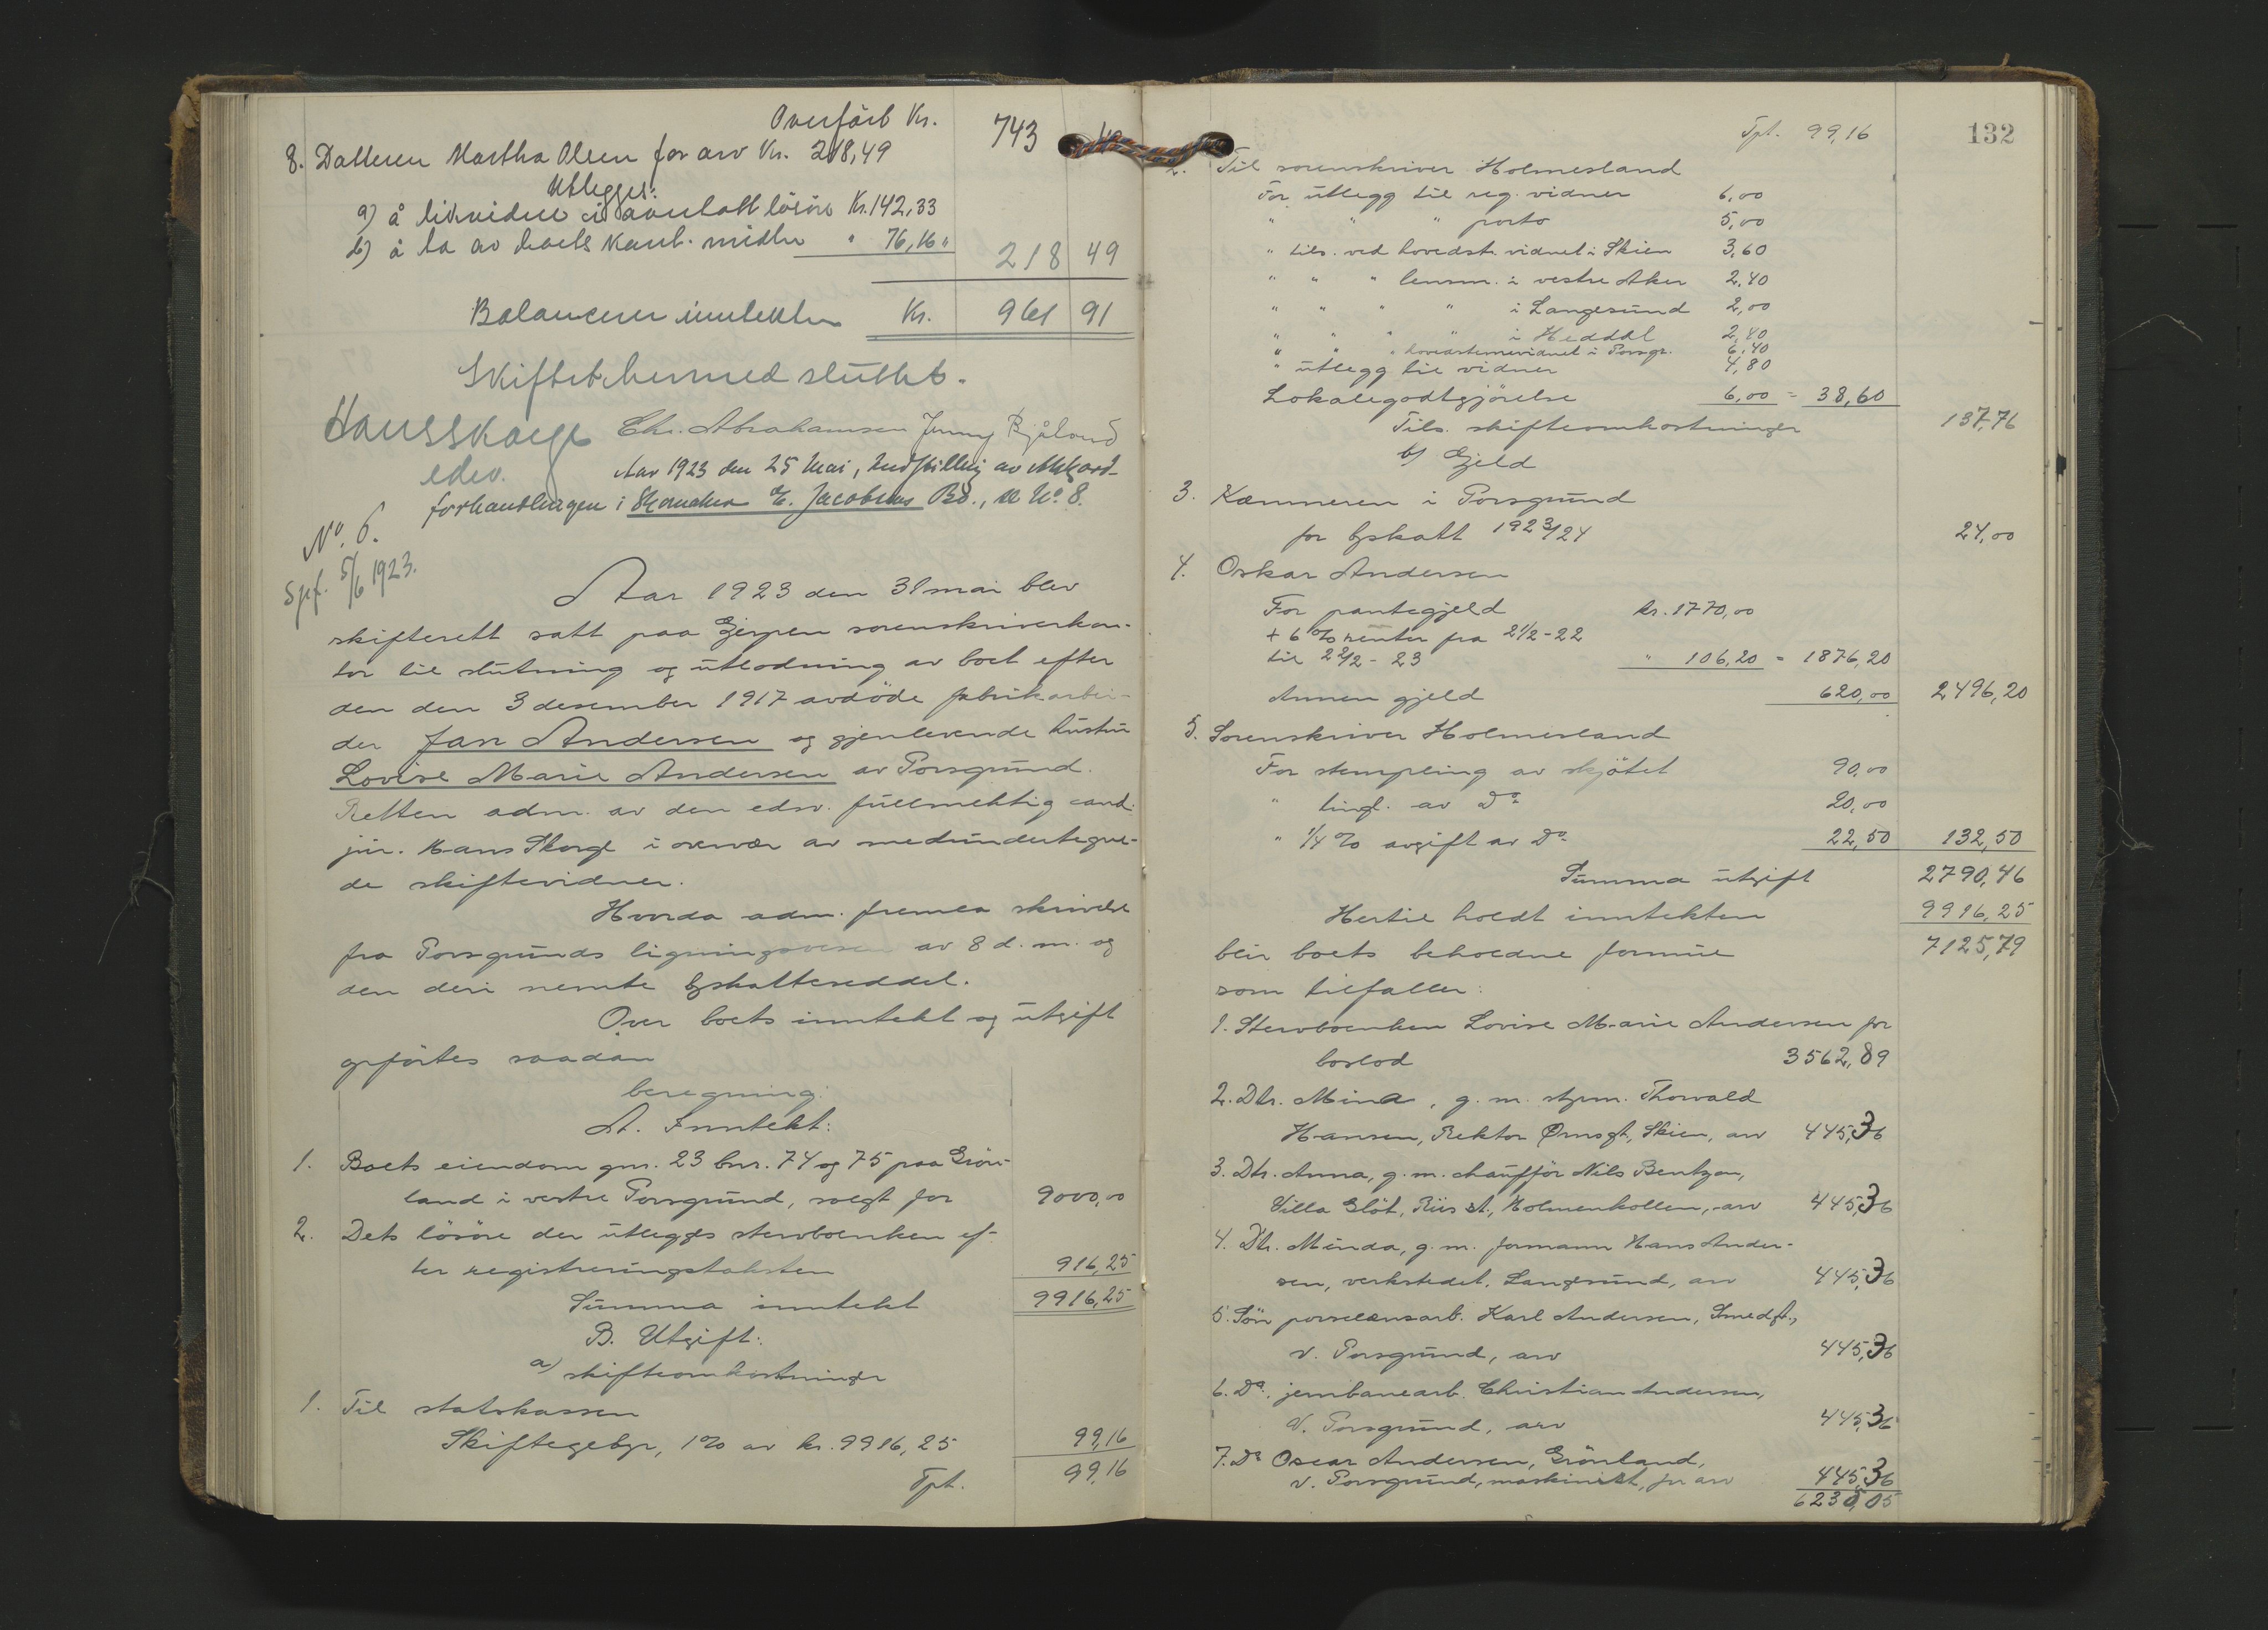 Overført Kr. 743
8. Datteren Martha Olsen for arv Kr. 218,49
Utlegges:
a) å likvidere i avertatt lösöre Kr. 142,33
b) å ta av boets kont. midler " 76,16 " 218 49
Balancerer inntekten Kr. 961 91
Skiftet hermed sluttet.
Hans Skorge Chr. Abrahamsen Jenny Bjåland
edsv.
Aar 1923 den 25 Mai, Indstilling av Akkord-
forhandlingen i E. Jacobsens Bo., No. 8.
No. 6.
Spf. 5/6 1923.
Aar 1923 den 31 mai blev
skifterett satt paa Gjerpen sorenskriverkon-
tor til slutning og utlodning av boet efter
den den 3 desember 1917 avdöde fabrikarbei-
der Jan Andersen og gjenlevende hustru
Lovise Marie Andersen av Porsgrund.
Retten adm. av den edsv. fullmektig cand.
jur. Hans Skorge i overvær av medundertegne-
de skiftevidner.
Hvorda adm. fremla skrivelse
fra Porsgrunds ligningsvesen av 8 d. m. og
den deri nevnte byskatteseddel.
Over boets inntekt og utgift
opförtes saadan
beregning:
A. Inntekt:
1. Boets eiendom gnr. 23 bnr. 74 og 75 paa Grön-
land i vestre Porsgrund, solgt for 9000,00
2. Dets lösöre der utlegges stervboenken ef-
ter registreringstaksten 916,25
Summa inntekt 9916,25
B. Utgift:
a) skifteomkostninger
1. Til statskassen
Skiftegebyr, 1% av kr. 9916,25 99,16
Tpt. 99,16
132
Tpt. 99,16
2. Til sorenskriver Holmesland
For utlegg til reg. vidner 6,00
" " " porto 5,00
" tils. ved hovedst. vidnet i Skien 3,60
" " " lensm. i vestre Aker 2,40
" " " " i Langesund 2,00
" " " " i Heddal 2,40
" " " hovedstevnevidnet i Porsgr. 6,40
" utlegg til vidner 4,80
Lokalegodtgjörelse 6,00 = 38,60
Tils. skifteomkostninger 137,76
b) Gjeld
3. Kæmneren i Porsgrund
for byskatt 1923/24 24,00
4. Oskar Andersen
For pantegjeld kr. 1770,00
+ 6% renter fra 21/2-22
til 22/2-23 " 106,20 = 1876,20
Annen gjeld 620,00 2496,20
5. Sorenskriver Holmesland
For stempling av skjötet 90,00
" tingl. av Do 20,00
" 1/4 % avgift av Do 22,50 132,50
Summa utgift 2790,46
Hertil holdt inntekten 9916,25
blir boets beholdne formue 7125,79
som tilfaller:
1. Stervboenken Lovise Marie Andersen for
boslod 3562,89
2. Dtr. Mina, g. m. styrm. Thorvald
Hansen, Rektor Ørnsgt, Skien, arv 445,36
3. Dtr. Anna, g. m. chaufför Nils Bentzon,
Villa Glöt, Riis st., Holmenkollen, arv 445,36
4. Dtr. Minda, g. m. formann Hans Ander-
sen, verkstedet, Langesund, arv 445,36
5. Sön porselænsarb. Karl Andersen, Smedgt.,
v. Porsgrund, arv 445,36
6. Do. jernbanearb. Christian Andersen,
V. Porsgrund, arv 445,36
7. Do Oscar Andersen, Grönland,
v. Porsgrund, maskinist, for arv 445,36
6235,05